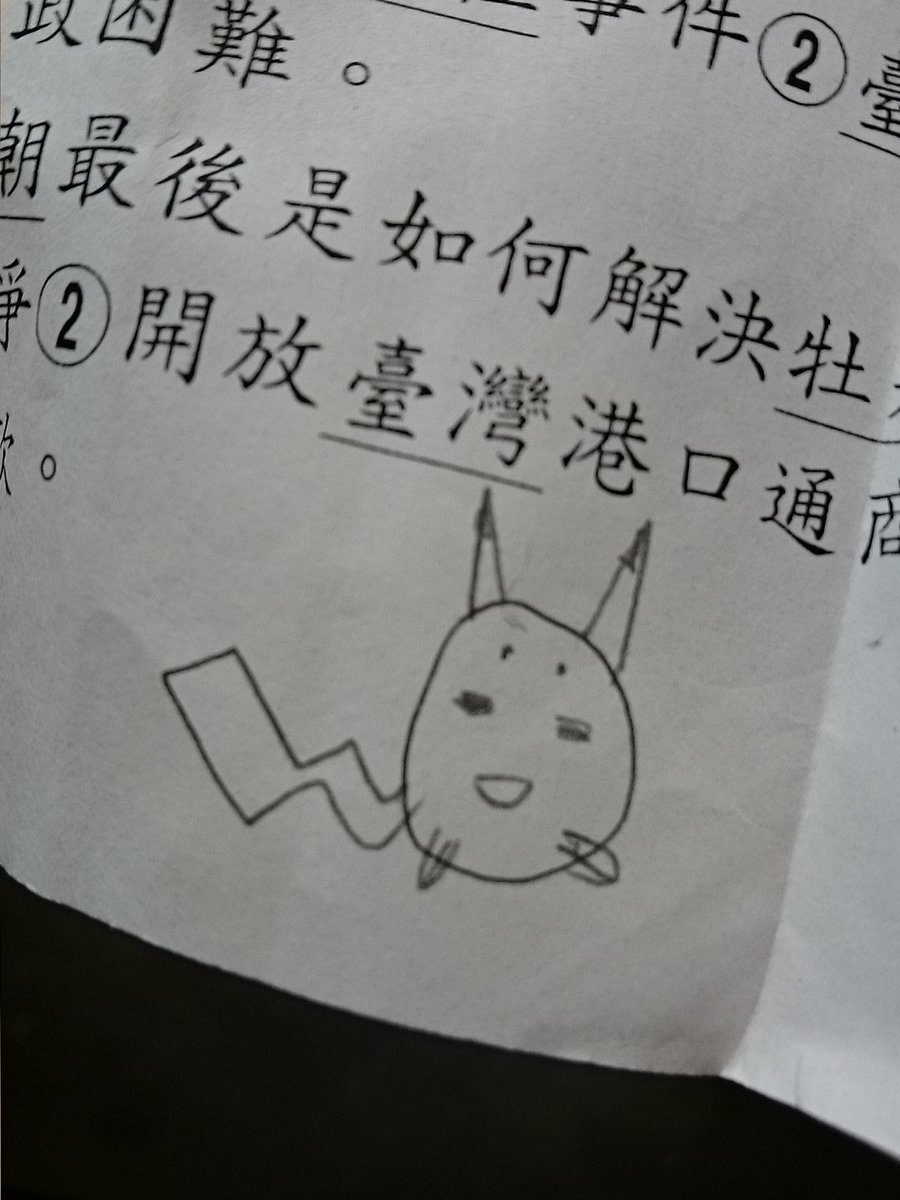 政困難。 事件②臺
朝最後是如何解決牡
②開放臺灣港口通商